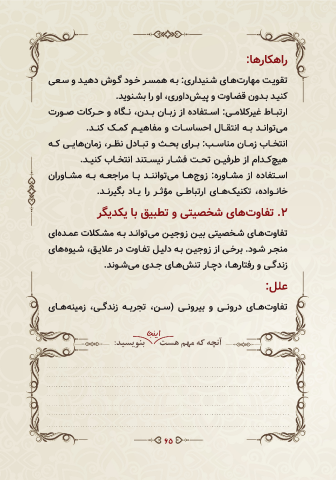 راهکارها:
تقویت مهارت‌های شنیداری: به همسر خود گوش دهید و سعی
کنید بدون قضاوت و پیش‌داوری، او را بشنوید.
ارتباط غیرکلامی: استفاده از زبان بدن، نگاه و حرکات صورت
می‌تواند به انتقال احساسات و مفاهیم کمک کند.
انتخاب زمان مناسب: برای بحث و تبادل نظر، زمان‌هایی که
هیچ‌کدام از طرفین تحت فشار نیستند انتخاب کنید.
استفاده از مشاوره: زوج‌ها می‌توانند با مراجعه به مشاوران
خانواده، تکنیک‌های ارتباطی مؤثر را یاد بگیرند.
۲. تفاوت‌های شخصیتی و تطبیق با یکدیگر
تفاوت‌های شخصیتی بین زوجین می‌تواند به مشکلات عمده‌ای
منجر شود. برخی از زوجین به دلیل تفاوت در علایق، شیوه‌های
زندگی و رفتارها، دچار تنش‌های جدی می‌شوند.
علل:
تفاوت‌های درونی و بیرونی (سن، تجربه زندگی، زمینه‌های
آنچه که مهم هست اینجا بنویسید:
۶۵